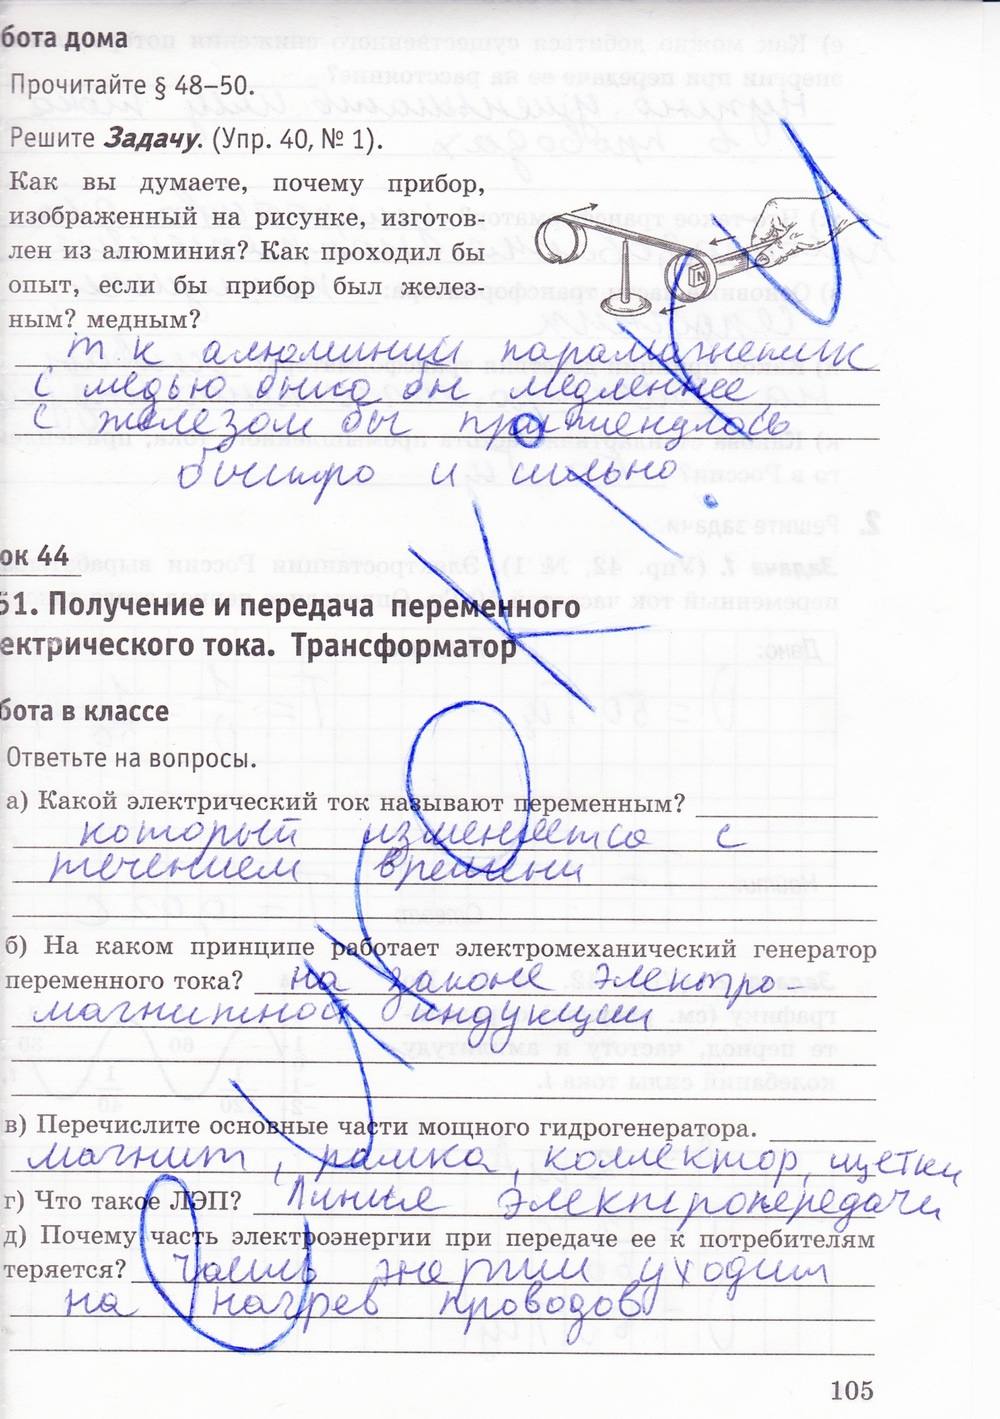 бота дома
Прочитайте § 48–50.
Решите Задачу. (Упр. 40, № 1).
Как вы думаете, почему прибор,
изображенный на рисунке, изготов-
лен из алюминия? Как проходил бы
опыт, если бы прибор был желез-
ным? медным?
N
т к алюминий парамагнетик
с медью было бы медленнее
с железом бы притянулось
быстро и сильно
ок 44
51. Получение и передача переменного
ектрического тока. Трансформатор
бота в классе
Ответьте на вопросы.
а) Какой электрический ток называют переменным?
который изменяется с
течением времени
б) На каком принципе работает электромеханический генератор
переменного тока? на законе электро-
магнитной индукции
в) Перечислите основные части мощного гидрогенератора.
магнит, рамка, коллектор, щетки
г) Что такое ЛЭП? Линие электропередачи
д) Почему часть электроэнергии при передаче ее к потребителям
теряется? часть энергии уходит
на нагрев проводов
105